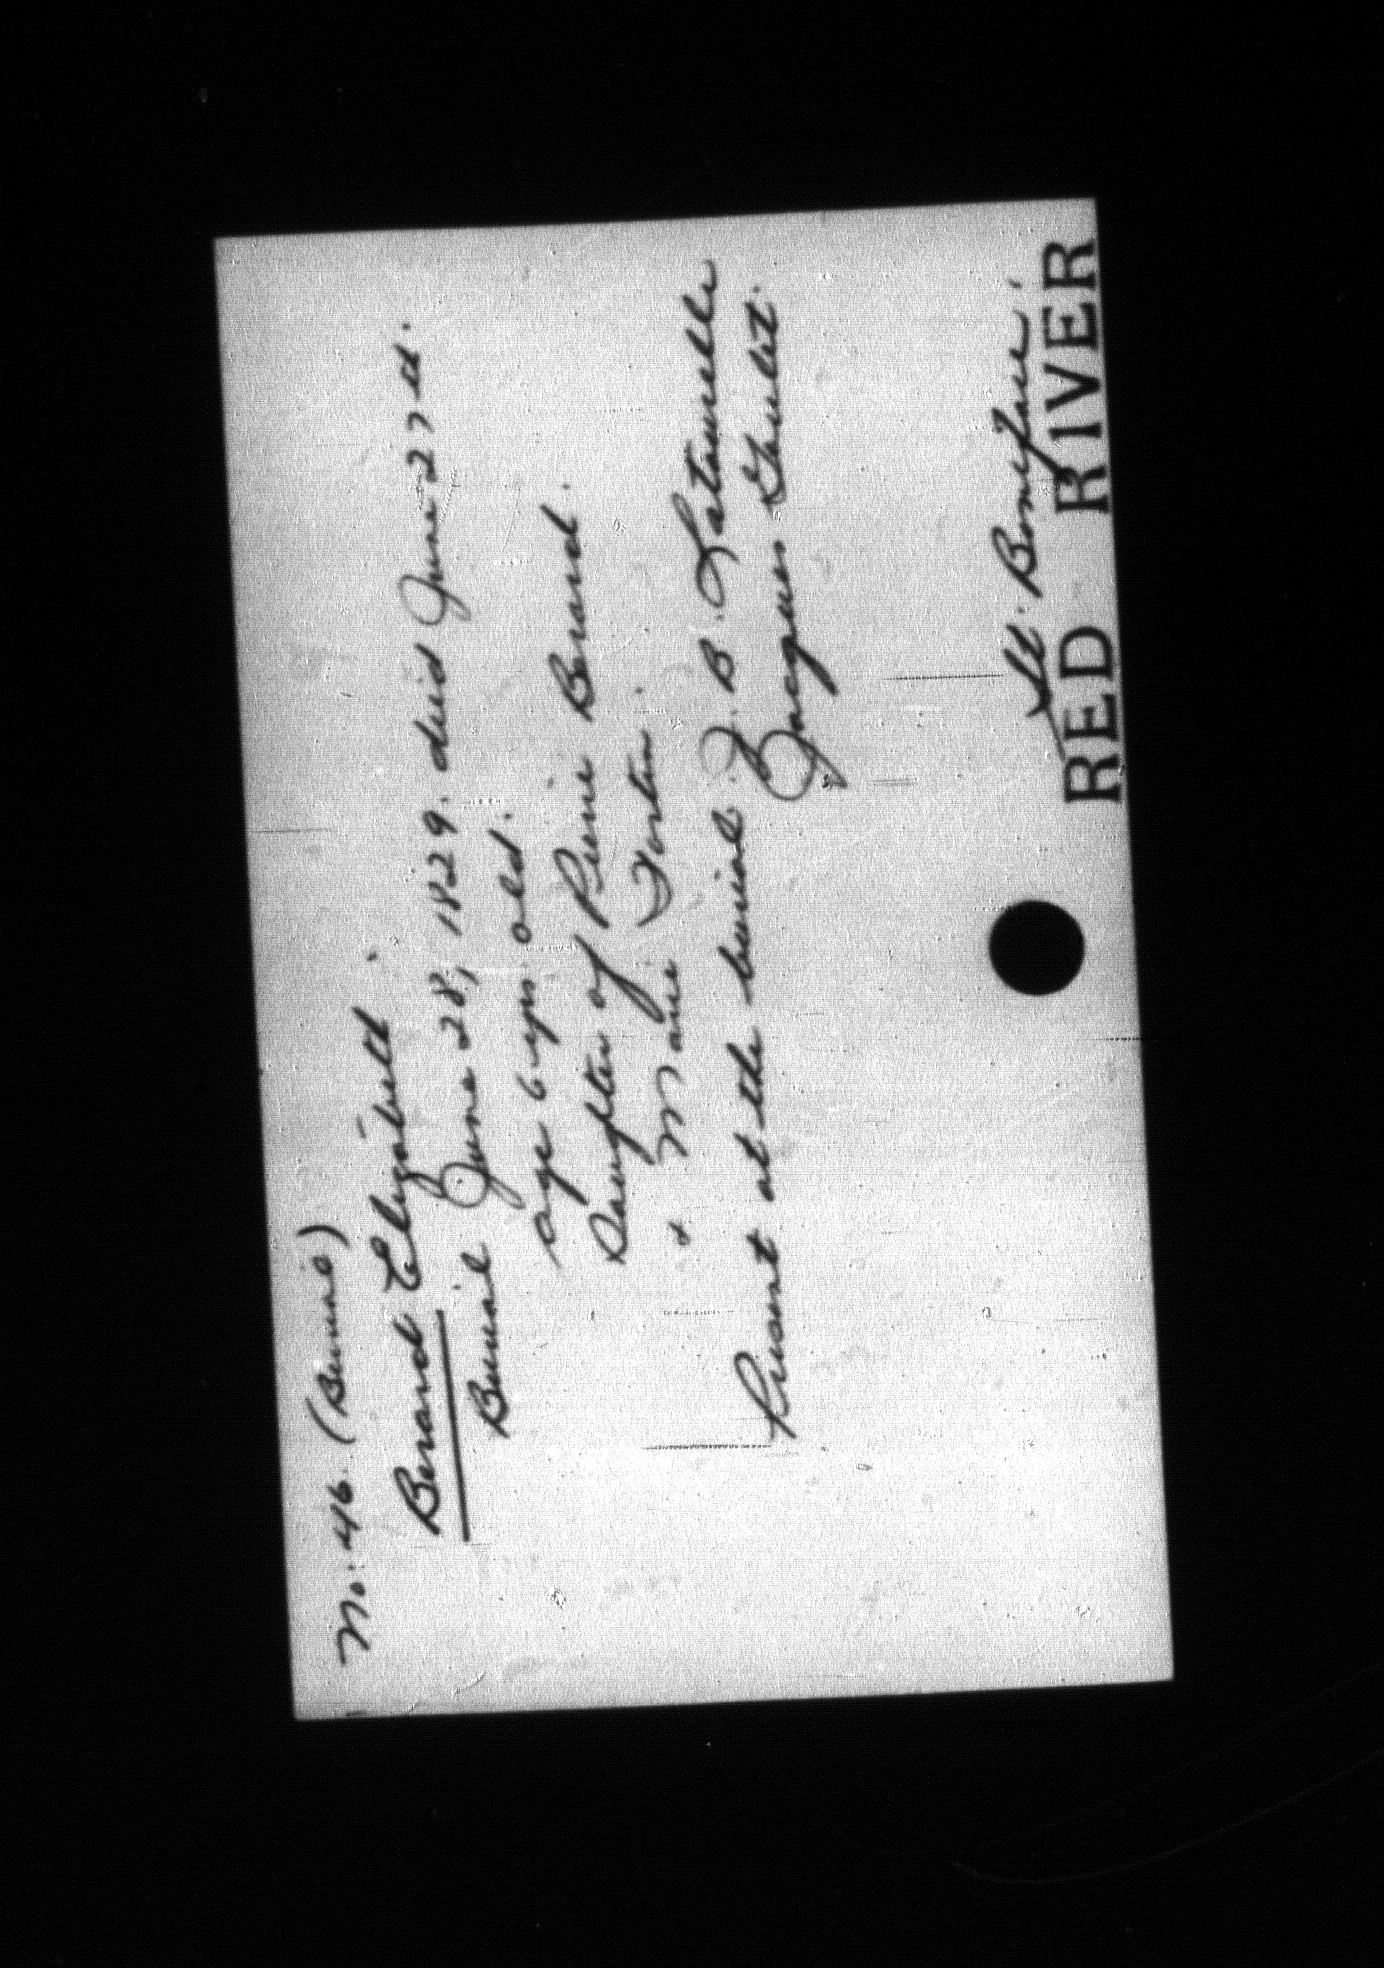 No. 46. (Burial)
Berard Elizabeth.
Burial June 28, 1829. died June 27th.
age 6 yrs. old.
Daughter of Pierre Berard.
& Marie Fortin.
Present at the burial. J. B. Latourelle
Jacques Goulet.
St. Boniface,
RED RIVER